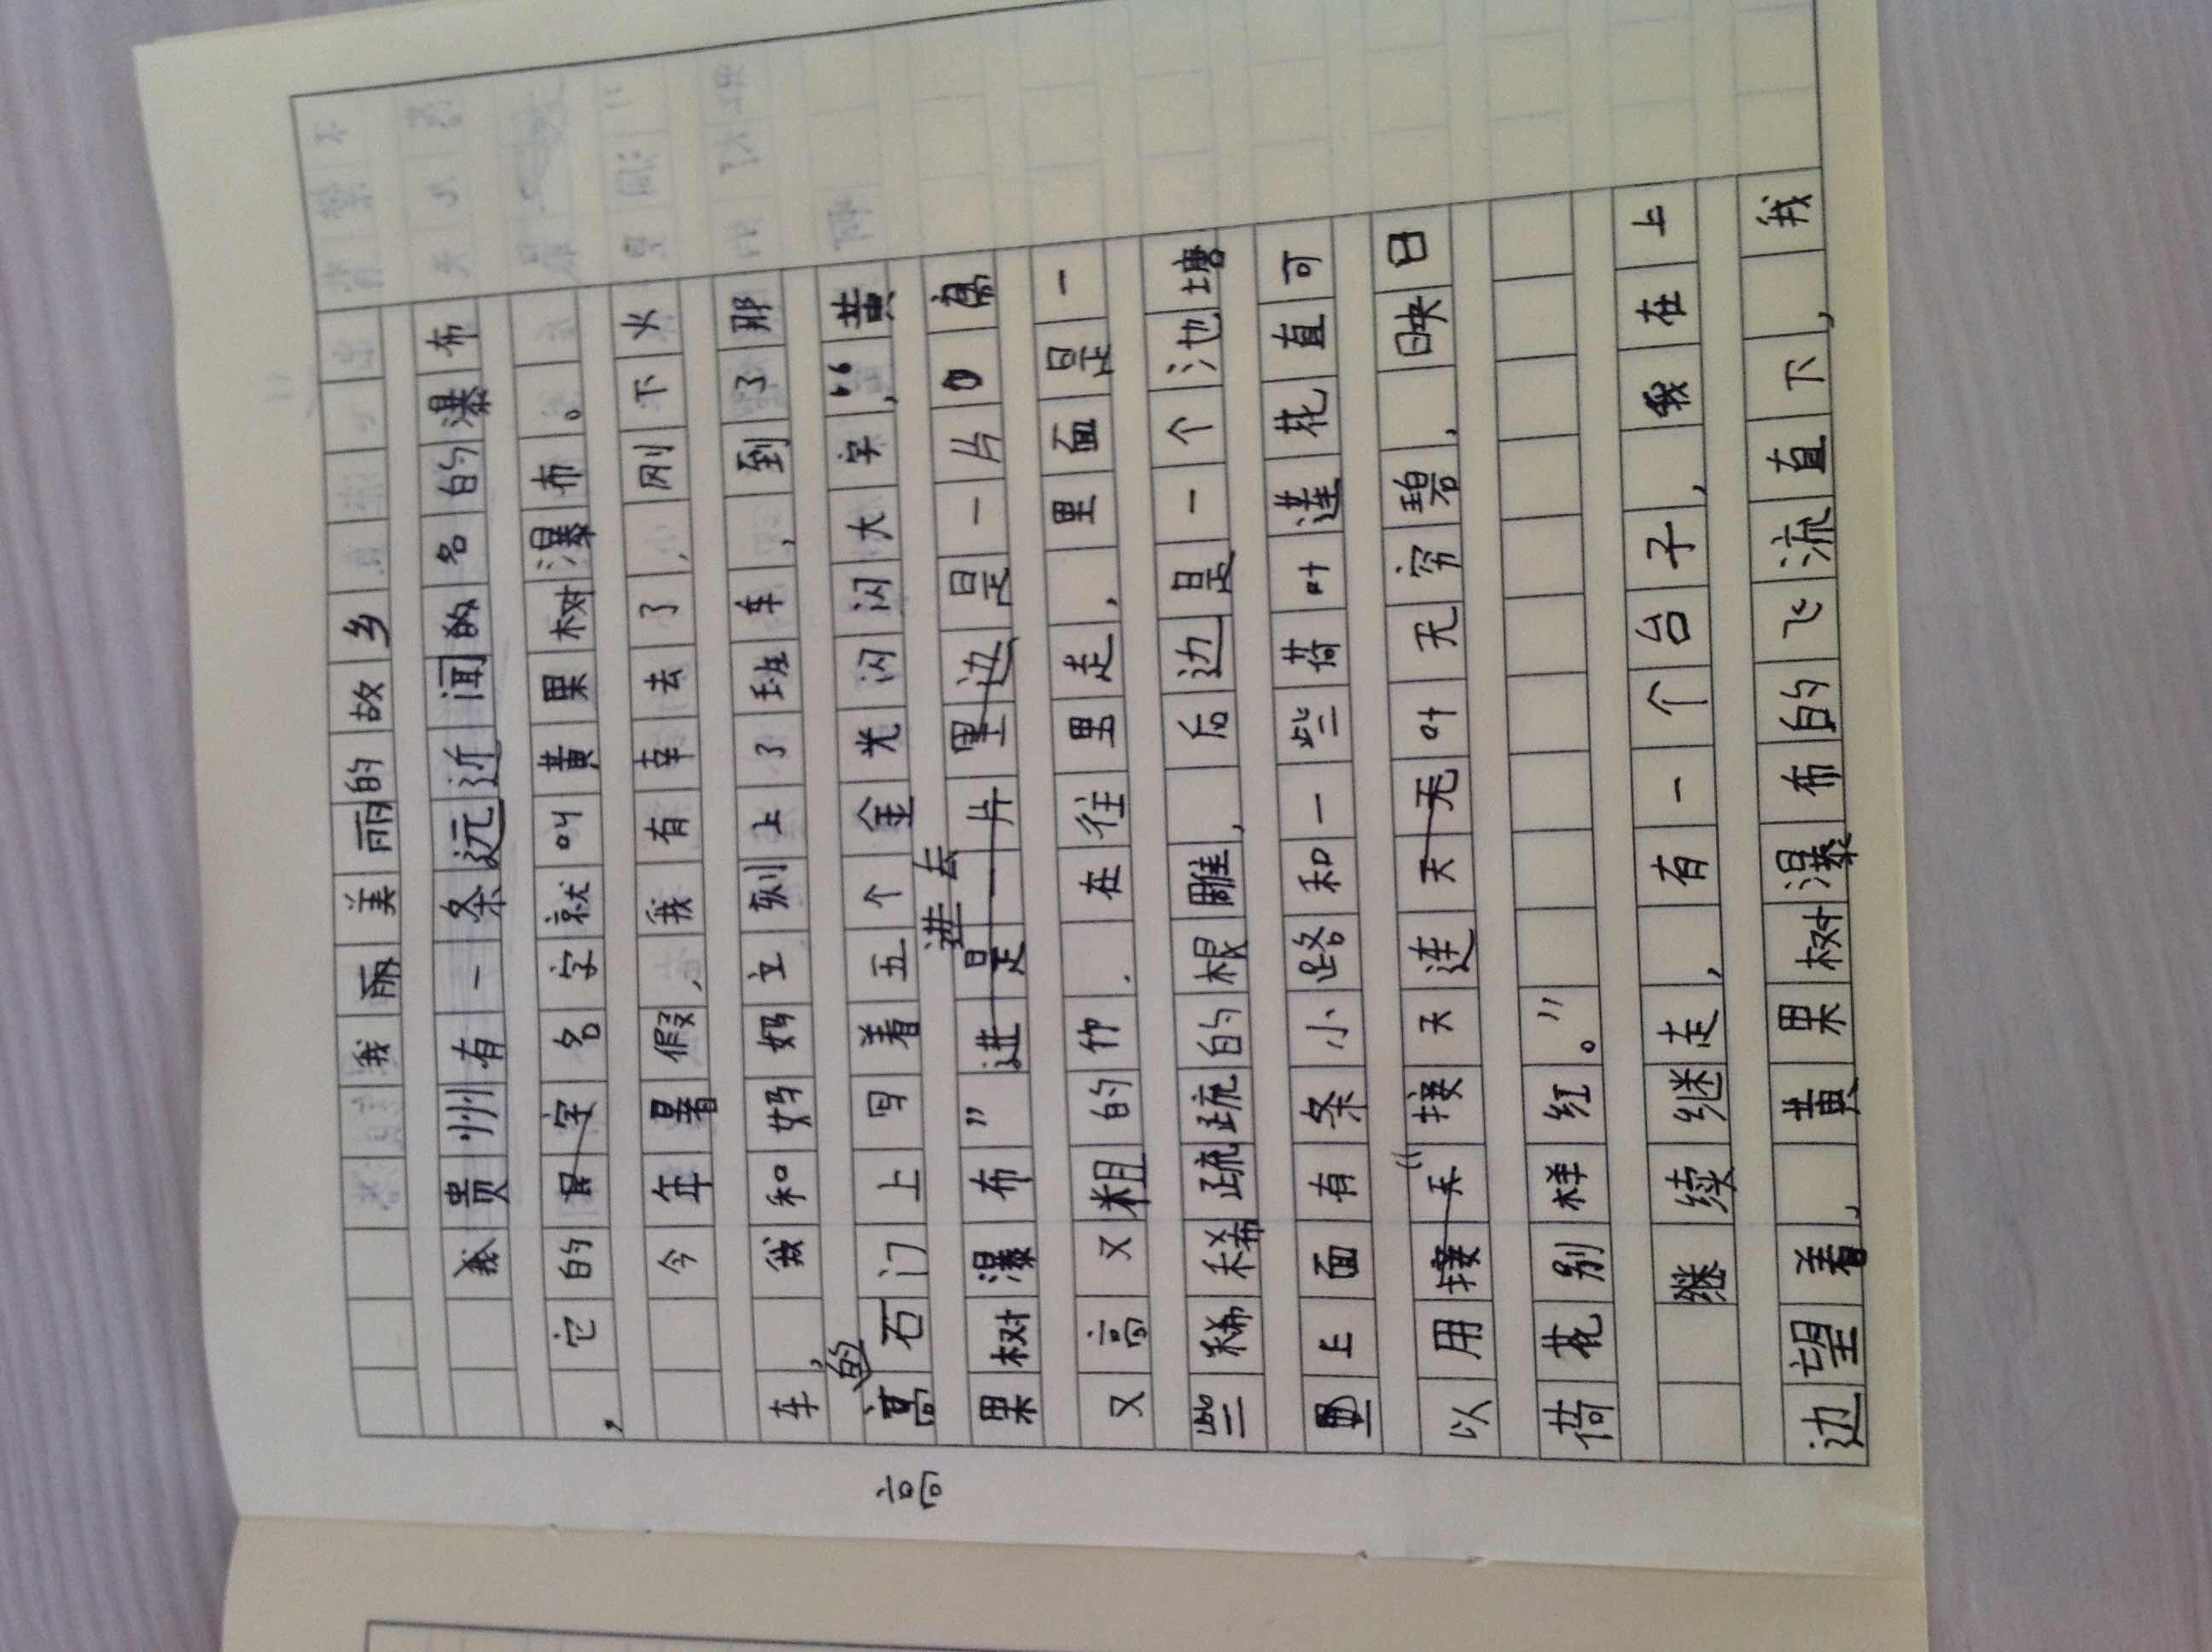 我丽美丽的故乡
贵州有一条远近闻名的瀑布
，它的名字就叫黄果树瀑布。
今年暑假，我有幸去了，刚下火
车，我和妈妈立刻上了班车，到了那
高
高的石门上写着五个金光闪闪大字，“黄
果树瀑布”进去是一片
又高又粗的竹．在往里走，里面是一
些稀稀疏疏的根雕，后边是一个池塘
上面有条小路和一些荷叶莲花直可
以用“接天连天叶无穷碧，映日
荷花别样红。”
继续继走，有一个台子，我在上
边望着，黄果树瀑布的飞流直下，我